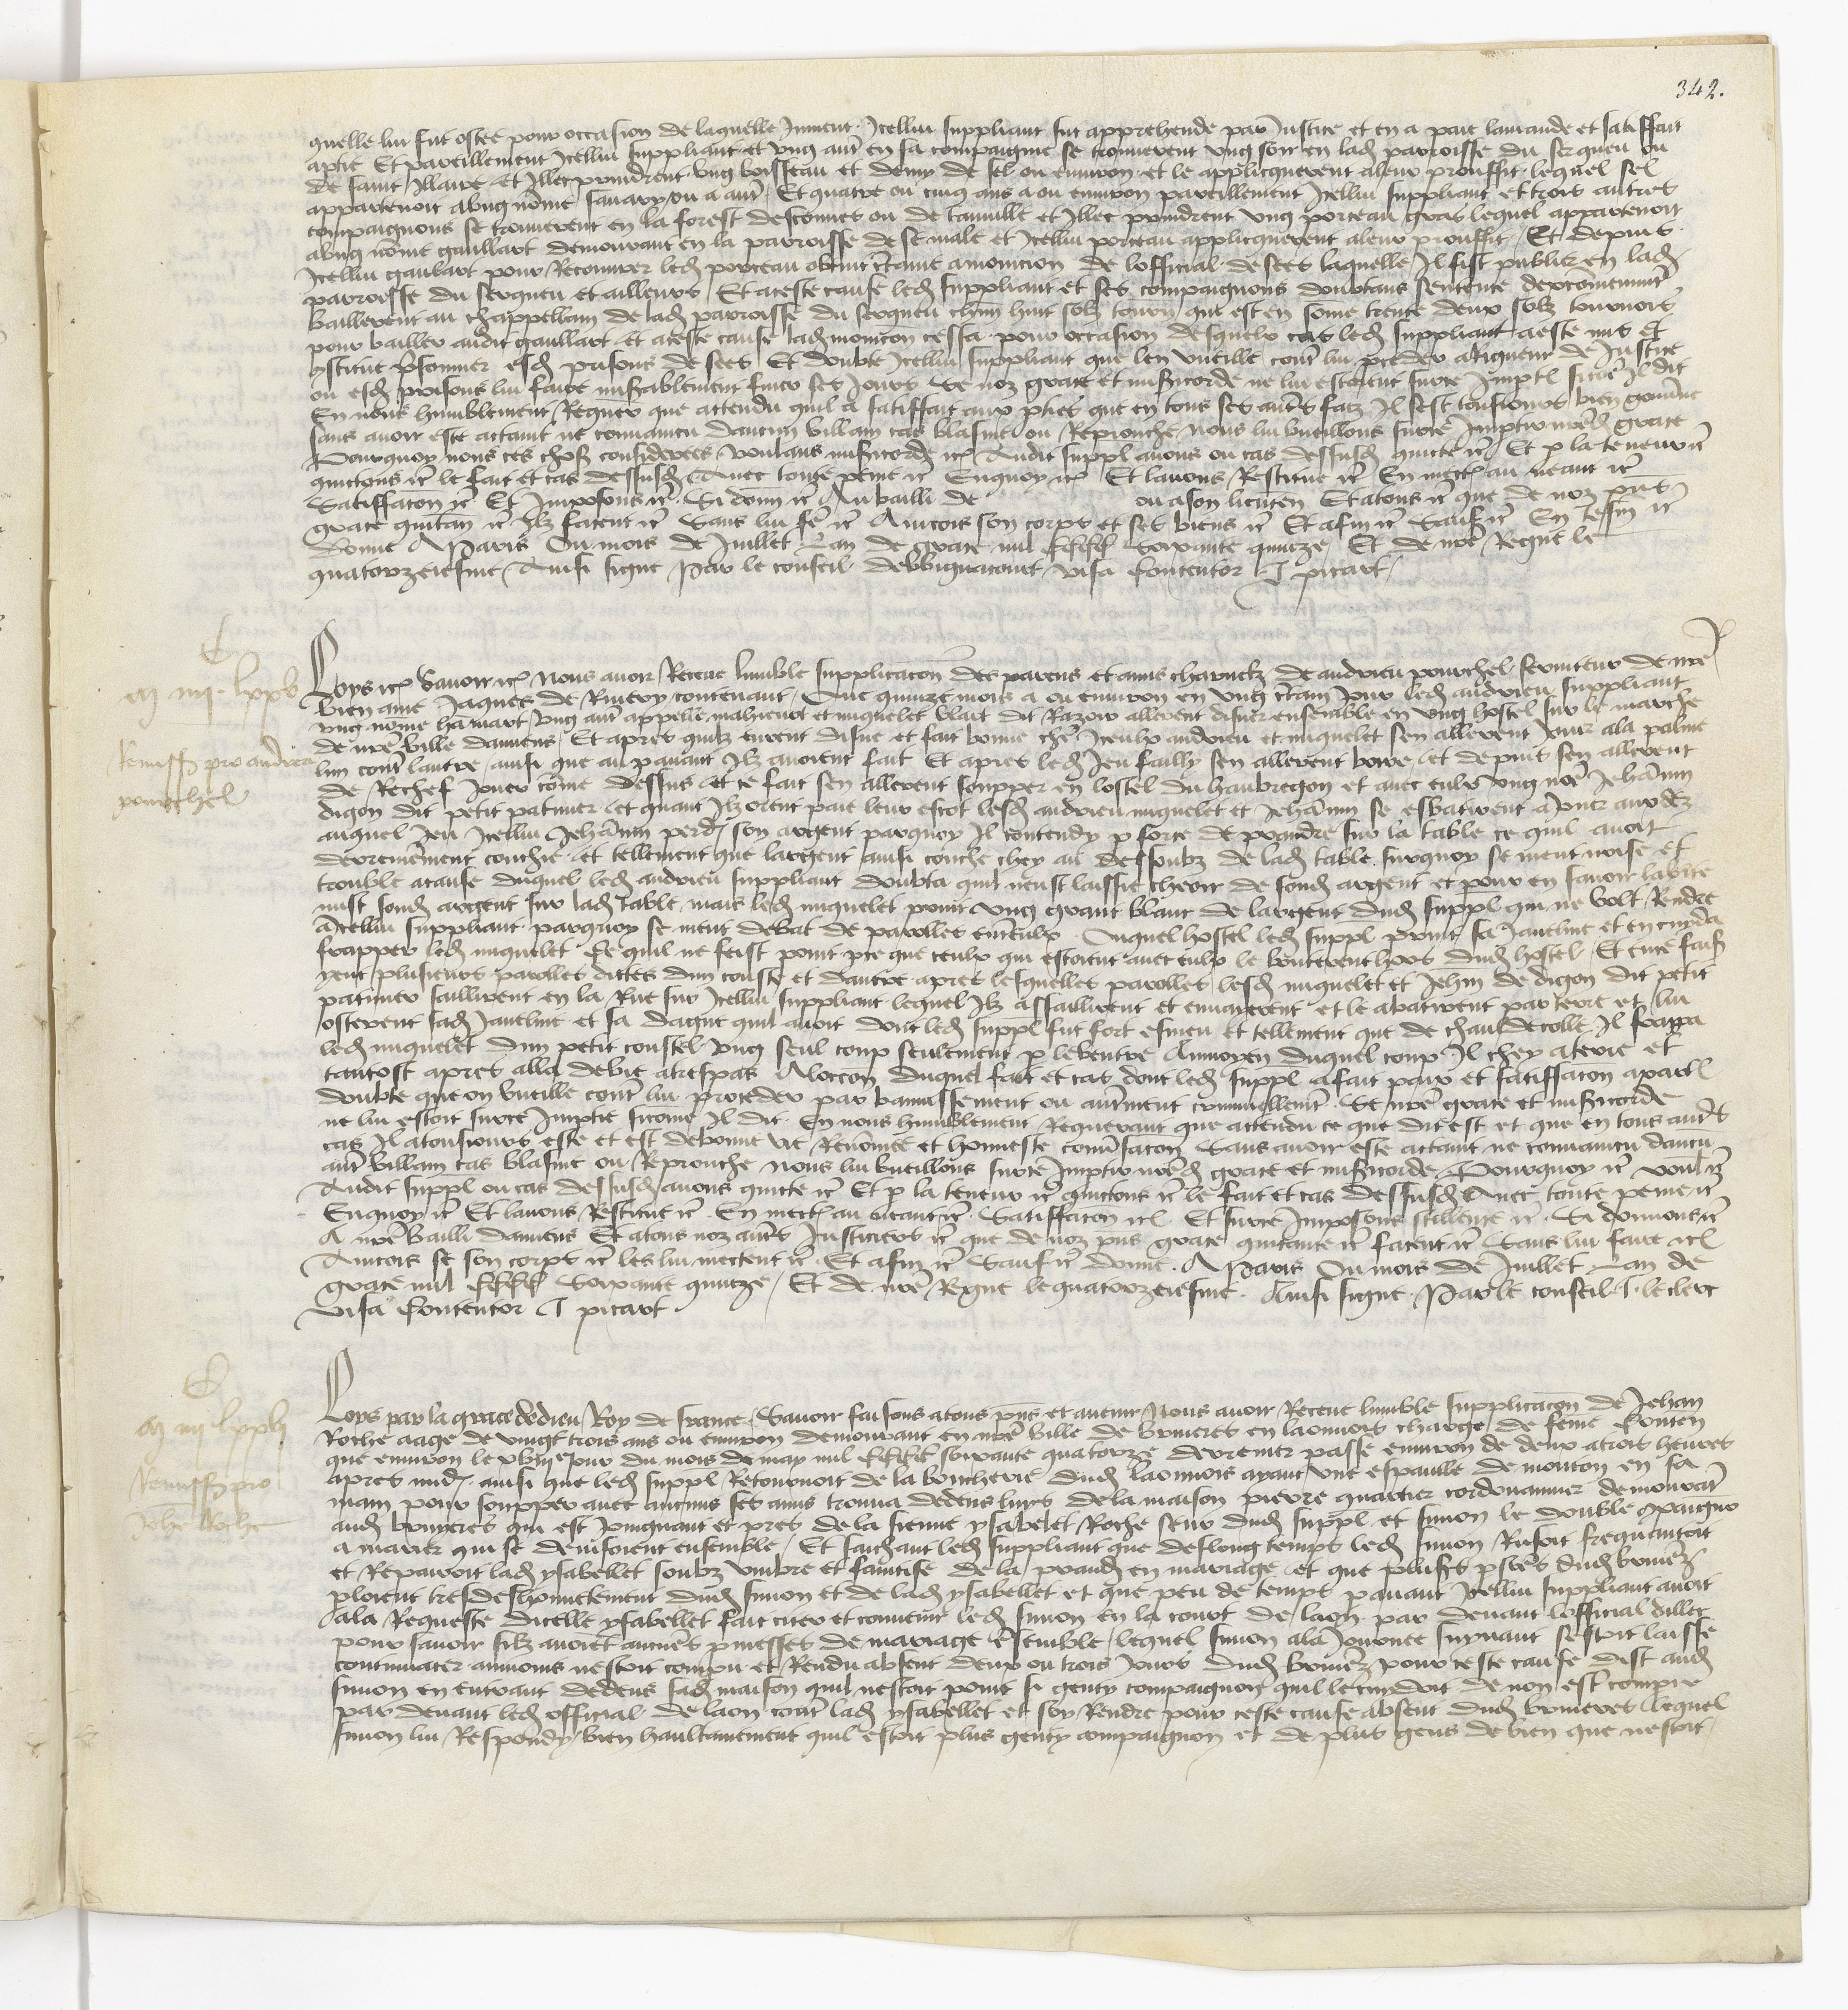 342.
quelle lui fut ostee pour occasion de laquelle Jument Icellui suppliant fut apprehende par Justice et en a paie lamande et satiffait
aptie Et pareillement Icellui suppliant et ung autre en sa compaignie se trouverent ung soir en lad parroisse du serqueu ou
de saint Illaire et Illec prindrent ung boisseau et demy de sel ou environ et le applicquerent a leur prouffit lequel sel
appartenoit a ung nomme savary ou a autre Et quatre ou cinq ans a ou environ pareillement Icellui suppliant et trois autres
compaignons se trouverent en la forest descouves ou de et Illec prindrent ung porceau gras lequel appartenoit
a ung nomme gaullart demourant en la parroisse de st male et Icellui porceau applicquerent a leur prouffit Et depuis
Icellui gaulart pour Recouvrer led porceau obtint certaine amonicion de lofficial de sees laquelle Il fist publier en lad
parroisse du serqueu et ailleurs Et a ceste cause led suppliant et ses compaignons doubtans sentence dexcommeniment
baillerent au chappellain de lad parroisse du serqueu chun huit solz tourn que est en somme trente deux solz tournois
pour bailler audit gaullart et a ceste cause lad monicon cessa pour occasion desquelx cas led suppliant a este mis et
constitue prisonnier esd prisons de sees Et doubte Icellui suppliant que len vueille contre lui proceder a Rigueur de Justice
ou esd prisons lui faire miserablement finer ses Jours Se noz grace et misericorde ne lui estoient surce Impti sicome Il dit
En nous humblement Requer que attendu quil a satiffait aux pties que en tous ses autres faiz Il sest tousiours bien gouverne
sans avoir este actaint ne convaincu daucun villain cas blasme ou Reprouche nous lui vueillons surce Imptir nosd grace
Pourquoy nous ces choses considerees voulans misericorde etc Audit suppl avons ou cas dessusd quicte etc Et p la teneur etc
quictons etc le fait et cas dessusd Avec toute peine etc Enquoy etc Et lavons Restitue etc En mect au neant etc
Satiffacon etc Et Imposons etc Si donn etc Au bailli de ou a son lieuten Et a tous etc que de noz pns
grace quictan etc Ilz facent etc Sans lui fe etc Aincois son corps et ses biens etc Et afin etc Sauf etc En tesm etc
Donne A Paris Ou mois de Juillet Lan de grace mil cccc soixante quinze Et de nre Regne le
quatorzeiesme Ainsi signe Par le conseil debbignacourt visa Contentor J picart
iiij lxxv
Remissio pro andrea
pourchel
Loys etc Savoir etc Nous avoir Receue lumble supplicacon des parens et amis charnelz de andrieu pourchel serviteur de nre
bien ame Jaques de Ruievy contenant Que quinze mois a ou environ en ung certain Jour led andrieu suppliant
ung nomme hamart ung autre appelle mahieuot et miquelet blait dit Razoir allerent disner ensemble en ung hostel sur le marche
de nre ville damiens Et apres quilz eurent disne et fait bonne chere Iceulx andrieu et miquelet sen allerent Jouer a la palme
lun contre lautre ainsi que au pavant Ilz avoient fait Et apres led Jeu failly sen allerent boire et depuis sen allerent
de Rechef Jouer comme dessus et ce fait sen allerent soupper en lostel du haubregon et avec eulx ung nome Jehannin
digon dit petit patinier et quant Ilz orent paie leur escot lesd andrieu miquelet et Jehannin se esbatirent a Juer aux dez
auquel Jeu Icellui Jehannin perdy son argent parquoy Il contendy p force de prandre sur la table ce quil avoit
derrenierement couchie et tellement que largent ainsi couche chey au dessoubz de lad table surquoy se meut noise et
trouble a cause duquel led andrieu suppliant doubta quil neust laissie cheoir de sond argent et pour en savoir laverite
mist sond argent sur lad table mais led miquelet print ung grant blanc de largent dud suppl qui ne volt Rendre
a Icellui suppliant parquoy se meut debat de parolles entreulx Ouquel hostel led suppl print sa Javeline et en cuida
frapper led miquelet Ce quil ne feist point pce que ceulx qui estoient avec eulx le bouterent hors dud hostel Et en ce fais
yeut plusieurs parolles dictes dun couste et dautre apres lesquelles parolles lesd miquelet et Jehan de digon dit petit
patinier saillirent en la Rue sur Icellui suppliant lequel Ilz assaillirent et et le abatirent par terre et lui
osterent sad Javeline et sa dague quil avoit dont led suppl fut fort esmeu et tellement que de chaudecolle Il frappa
led miquelet dun petit coustel ung seul coup seulement p le ventre Aumoyen duquel coup Il chey a terre et
tantost apres alla de vie a trespas Aloccon duquel fait et cas dont led suppl a fait paix et satiffacon a partie
doubte que on vueille contre lui proceder par bannissement ou autrement criminellement Se nre grace et misericorde
ne lui estoit surce Imptie sicome Il dit En nous humblement Requerant que attendu ce que dit est et que en tous autres
cas Il a tousiours este et est de bonne vie Renommee et honneste conversacon Sans avoir este actaint ne convaincu daucun
autre villain cas blasme ou Reprouche nous lui vueillons surce Imptir nosd grace et misericorde Pourquoy etc voul etc
Audit suppl ou cas dessusd avons quicte etc Et p la teneur etc quictons etc le fait et cas dessusd Avec toute peine etc
Enquoy etc Et lavons Restitue etc En mect au neant etc Satiffacon etc Et surce Imposons scillence etc Si donnons etc
A nre bailli damiens Et a tous noz autres Justiciers etc que de noz pns grace quictance etc facent etc Sans lui faire etc
Aincois se son corps etc les lui mectent etc Et afin etc Sauf etc Donne A Paris Ou mois de Juillet Lan de
grace mil cccc soixante quinze Et de nre Regne le quatorzeiesme Ainsi signe Par le conseil J le clerc
Visa Contentor J picart
iiij lxxvj
Remissio pro
Johe Roche
Loys par la grace de dieu Roy de france Savoir faisons a tous pns et avenir Nous avoir Receue lumble supplicacon de Jehan
Roche aage de vingt trois ans ou environ demourant en nre ville de bruieres en laonnois charge de feme Conten
que environ le xviije Jour du mois de may mil cccc soixante quatorze derrenier passe environ de deux a trois heures
apres midy ainsi que led suppl Retournoit de la boucherie dud laonnois ayant une espaulle de mouton en sa
main pour soupper avec aucuns ses amis trouva dedens luys de la maison pierre quartier cordouannier demourant
aud bruyeres qui est Joingnant et pres de la sienne ysabelet Roche seur dud suppl et simon le double compaignon
a marier qui se devisoient ensemble Et saichant led suppliant que de long temps led simon Rusoit frequantoit
et Reparoit lad ysabellet soubz umbre et faintise de la prandre en mariage et que plusrs psones dud bruieres
ploient tresdeshonnestement dud simon et de lad ysabellet et que peu de temps pavant Icellui suppliant avoit
a la Requeste dicelle ysabellet fait citer et convenir led simon en la court de laon par devant lofficial dillec
pour savoir silz avoiet aucunes pmesses de mariage ensemble lequel simon a la Journee suyvant sestoit laisse
continuacer aumoins nestoit compu et Rendu absent deux ou trois Jours dud bruieres pour ceste cause dist aud
simon en entrant dedens sad maison quil nestoit point si genty compaignon quil le cuydoit de non estre compu
par devant led official de laon contre lad ysabellet et soy Rendre pour ceste cause absent dud bruieres Lequel
simon lui Respondy bien haultainement quil estoit plus genty compaignon et de plus gens de bien que nestoit